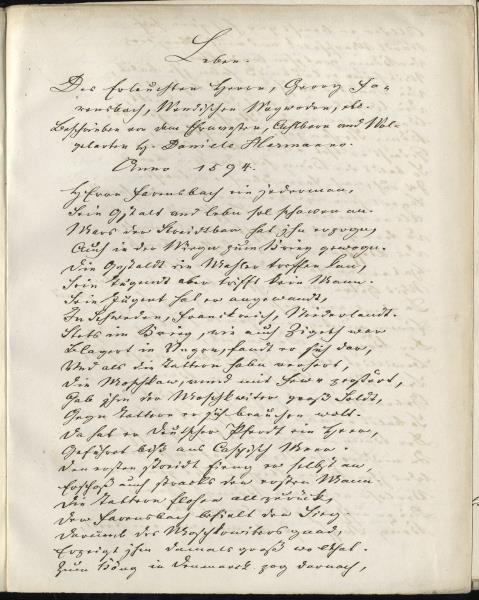 Leben.
Des Erleuchten Herrn, Georg Fa-
rensbach, Wendischen Waywoden, etc.
Beschrieben von dem Ehrnvesten, Achtbarn und Wol-
gelarten H. Daniele Hermanno.
Anno 1594.
Herrn Farensbach ein jederman,
Sein Gstalt und leben sol schawen an.
Mars der Streidtbar hat jhn erzogn,
Auch in der Wiegn zum Krieg gewogn.
Die Gestaldt ein Mahler treffen kan,
Sein Tugendt aber trifft kein Mann.
Sein Jugent hat er angewandt,
In Schweden, Franckreich, Niderlandt.
Stets im Krieg, wie auch Zigeth war
Blagert in Ungern, fandt er sich dar,
Und als die Tattern haben verhert,
Die Moschkaw, unnd mit Fewr zerstört,
Gab jhm der Moschkwiter groß Soldt,
Gegn Tattern er jhn brauchen wolt.
Da hat er Deutscher Pferdt ein Heer,
Geführet biß ans Caspisch Meer.
Den ersten streidt fieng er selbst an,
Erschoß auch stracks den ersten Mann.
Die Tattern flohen all zurück,
Dem Farensbach behielt den Sieg.
Darumb des Moschkowiters gnad,
Erzeigt jhm damals groß wolthat.
Zum König in Denmarck zog darnach,